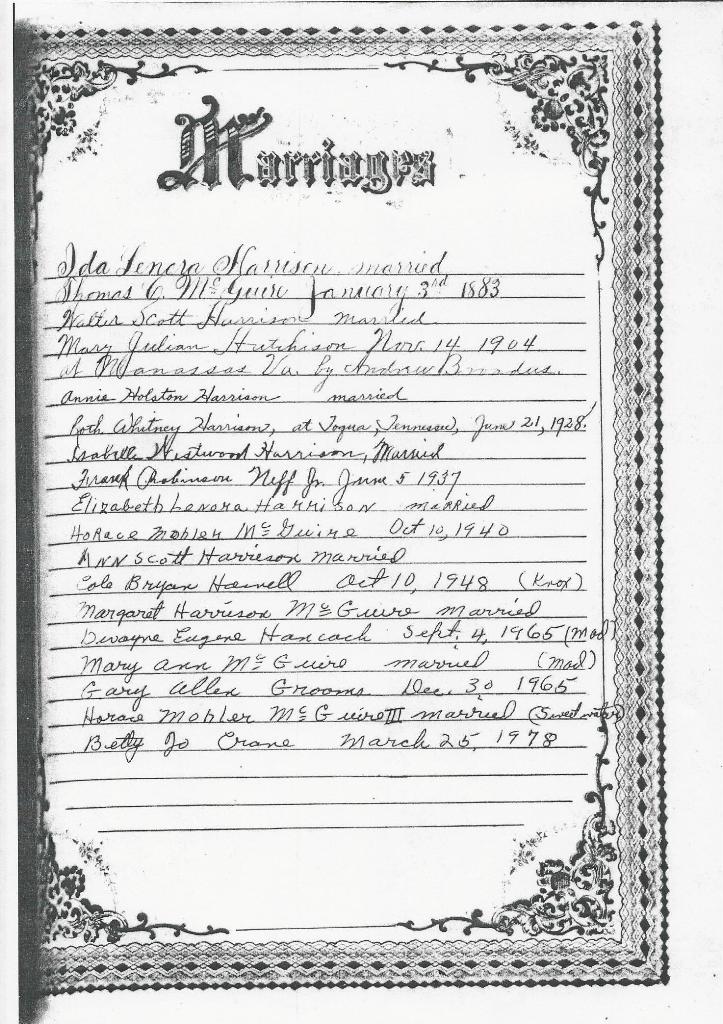 Marriages
Ida Lenora Harrison married
Thomas C. McGuire January 3rd 1883
Walter Scott Harrison married
Mary Julian Hutchison Nov. 14 1904
at Manassas Va. by Andrew Broadus.
Annie Holston Harrison married
Roth Whitney Harrison, at Toqua, Tennessee, June 21, 1928.
Isabelle Westwood Harrison, Married
Frank Robinson Neff Jr. June 5 1937
Elizabeth Lenora Harrison married
Horace Mohler McGuire Oct 10, 1940
Ann Scott Harrison married
Cole Bryan Howell Oct 10, 1948 (Knox)
Margaret Harrison McGuire married
Dwayne Eugene Hancock Sept. 4, 1965 (Mad)
Mary Ann McGuire married (Mad)
Gary Allen Grooms Dec. 30 1965
Horace Mohler McGuire III married (Sweetwater)
Betty Jo Crane March 25, 1978